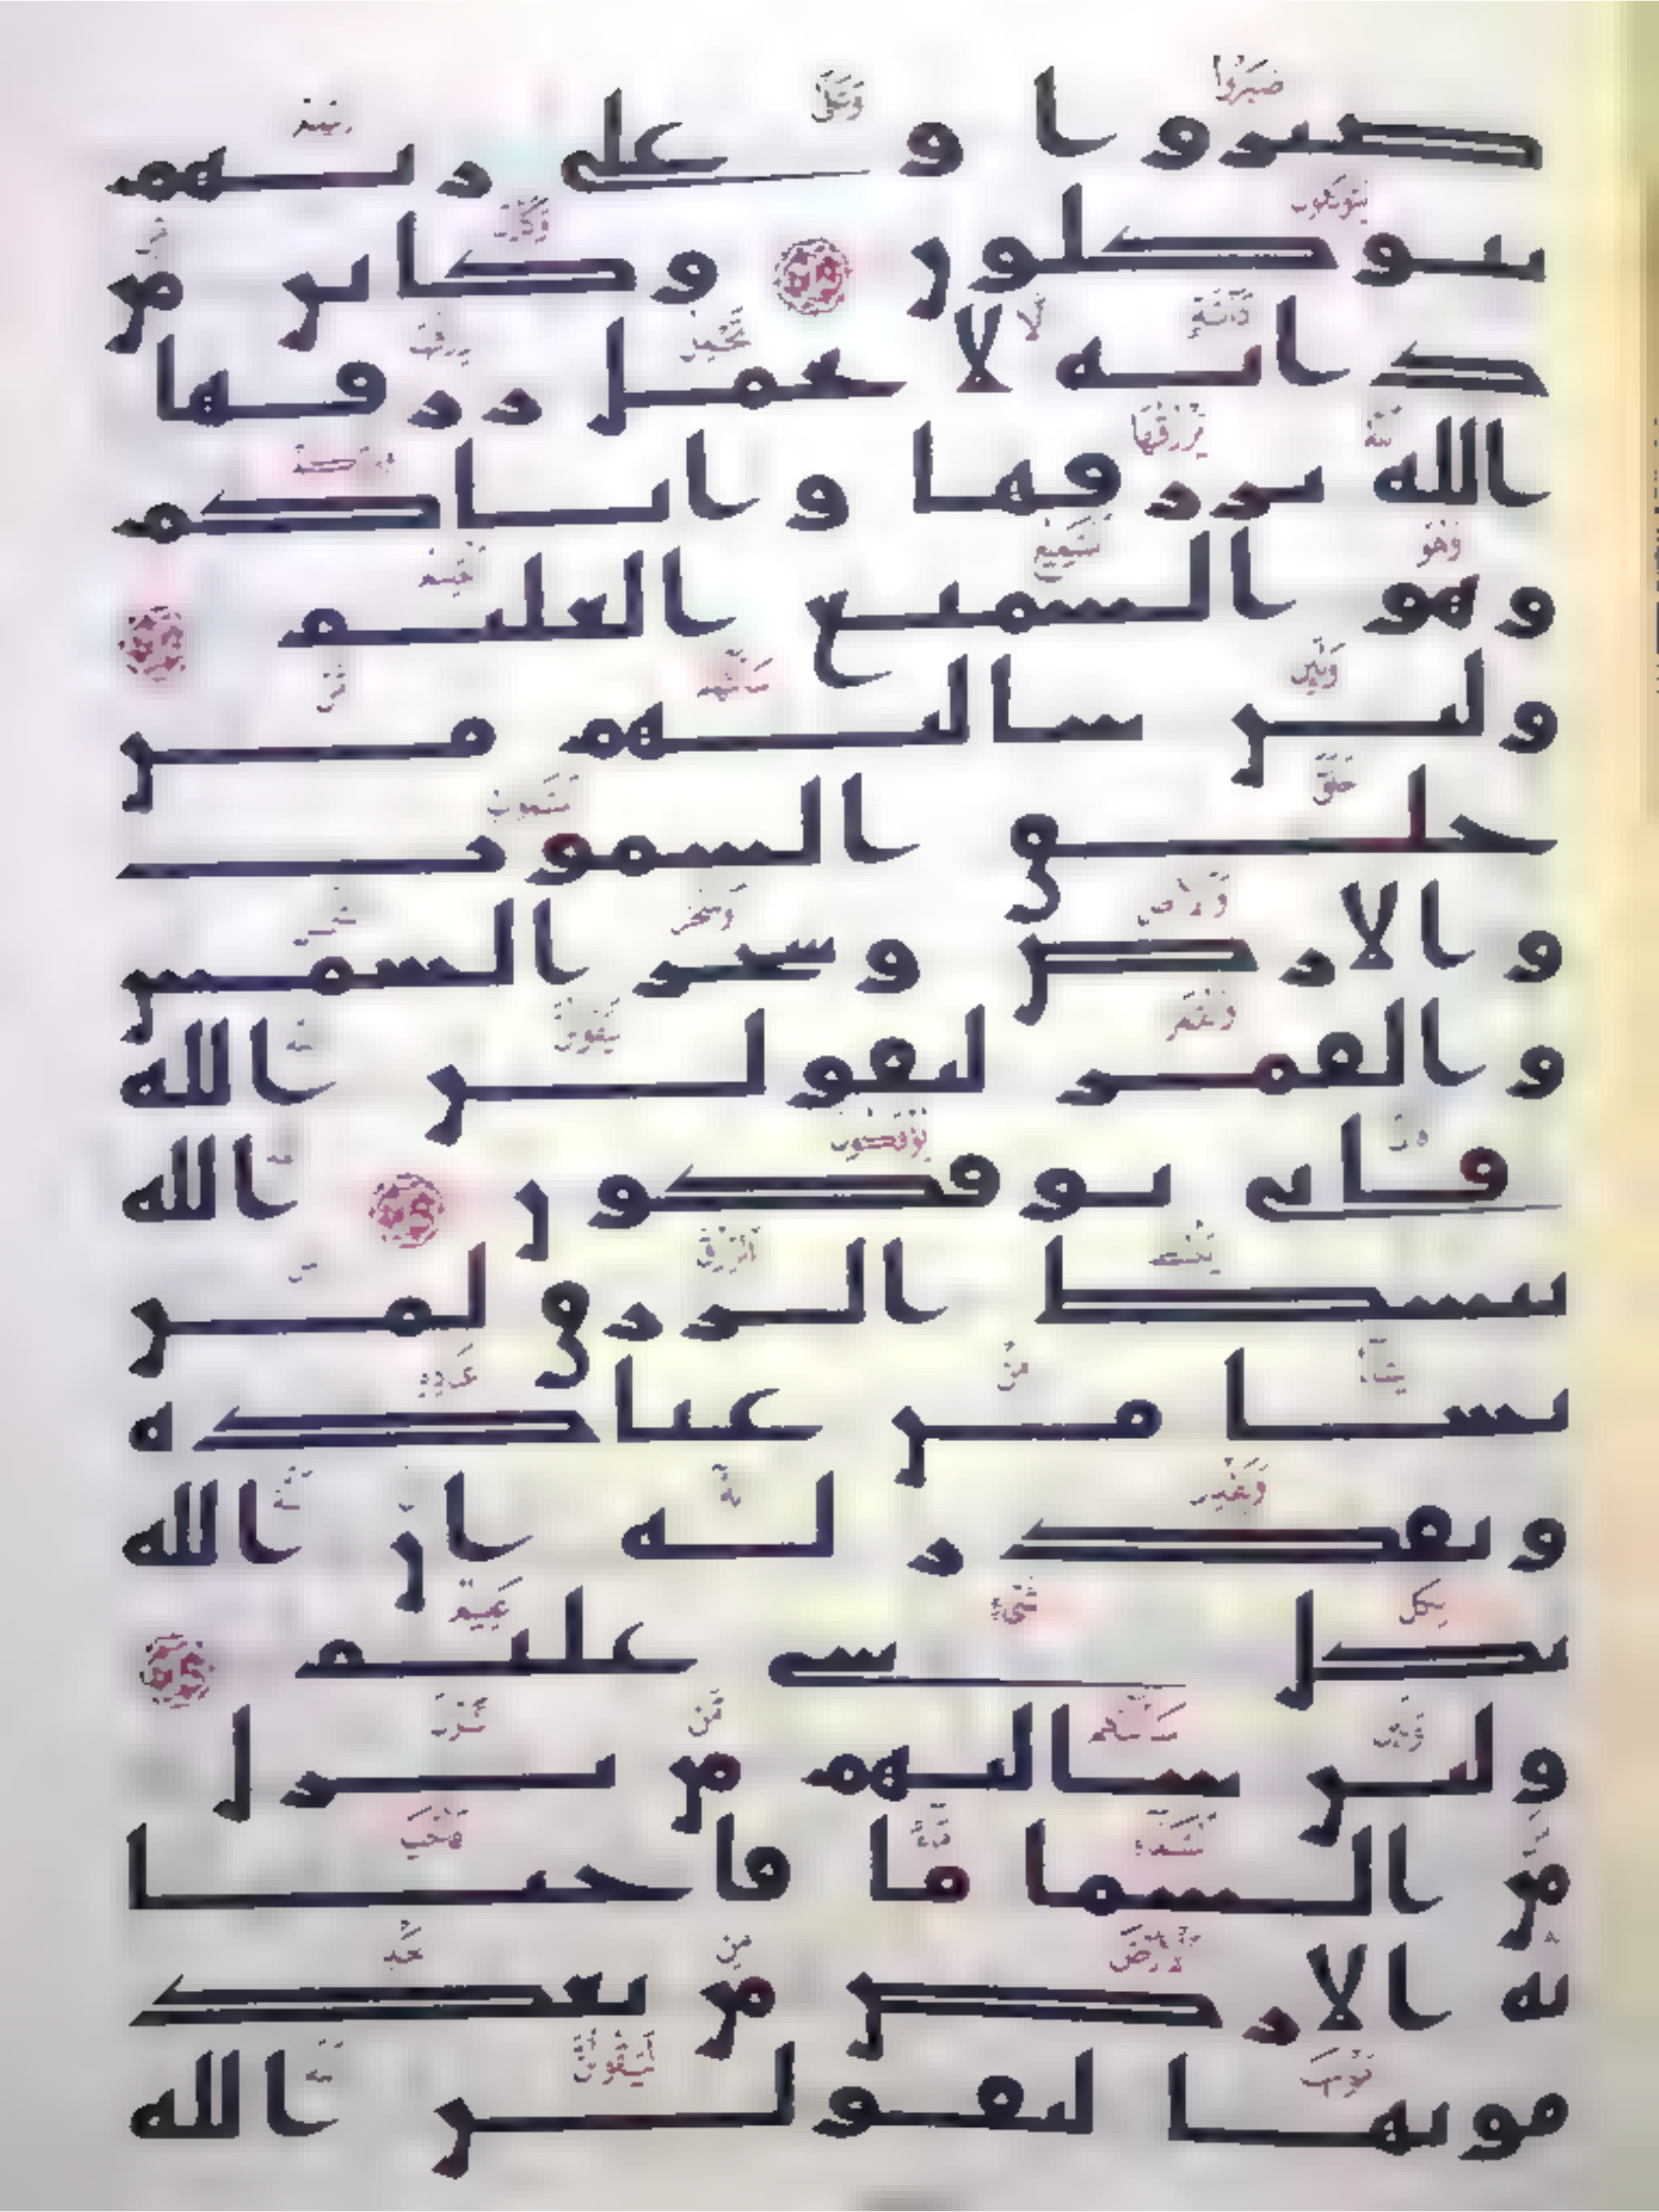 صبروا وعلى ربهم
يتوكلون وكاين من
دابة لا تحمل رزقها
الله يرزقها واياكم
وهو السميع العليم
ولين سالتهم من
خلق السموت
والارض وسخر الشمس
والقمر ليقولن الله
فانى يوفكون الله
يبسط الرزق لمن
يشا من عباده
ويقدر له ان الله
بكل شي عليم
ولين سالتهم من نزل
من السما ما فاحيا
به الارض من بعد
موتها ليقولن الله